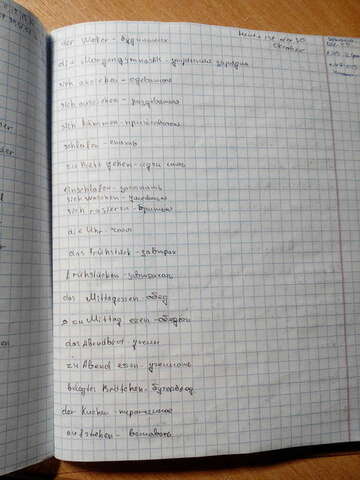 Heute ist der 30
Oktober
der Wecker - будильник
die Morgengymnastik - утренняя зарядка
sich anziehen - одеваться
sich ausziehen - раздеваться
sich kämmen - причёсываться
schlafen - спать
zu Bett gehen - идти спать
einschlafen - засыпать
sich waschen - умываться
sich rasieren - бриться
die Uhr часы
das Frühstück - завтрак
frühstücken - завтракать
das Mittagessen - обед
zu Mittag essen - обедать
das Abendbrot ужин
zu Abend essen - ужинать
belegtes Brötchen - бутерброд
der Kuchen - пирожное
aufstehen - вставать